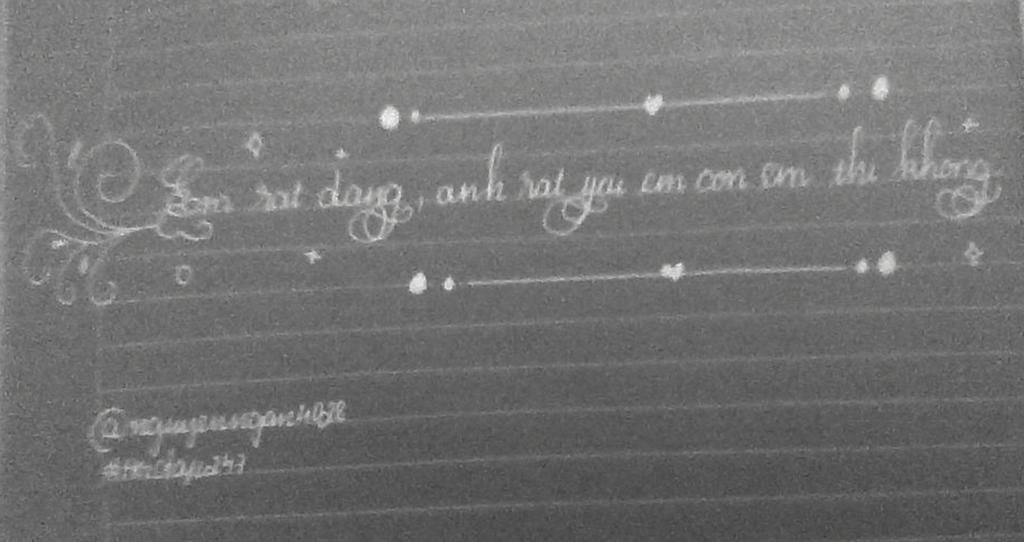 Em rat dang, anh rat yeu em con em thi khong.
@nguyenngan4078